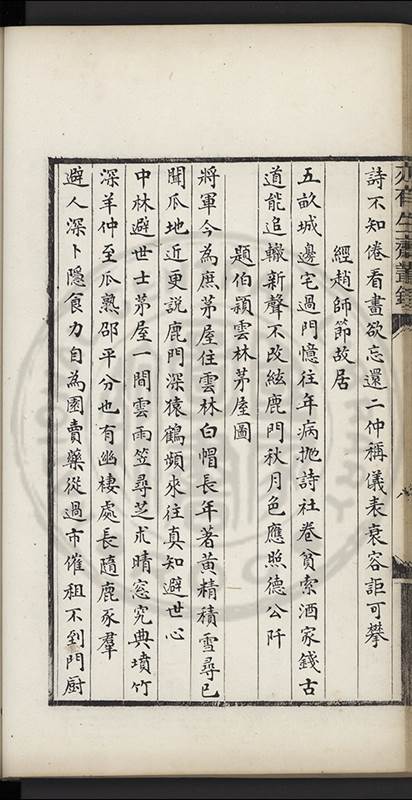 詩不知倦看畫欲忘還二仲稱儀表衰容詎可攀
經趙師節故居
五畝城邊宅過門憶往年病拋詩社卷貧索酒家錢古
道能追轍新聲不改絃鹿門秋月色應照德公阡
題伯顔雲林茅屋圖
將軍今為庶茅屋住雲林白帽長年著黃精積雪尋已
聞瓜地近更説鹿門深猿鶴頻來往真知避世心
中林避世士茅屋一間雲雨笠尋芝朮晴窓究典墳竹
深羊仲至瓜熟邵平分也有幽棲處長隨鹿豕羣
避人深卜隱食力自為園賣藥從過市催租不到門厨